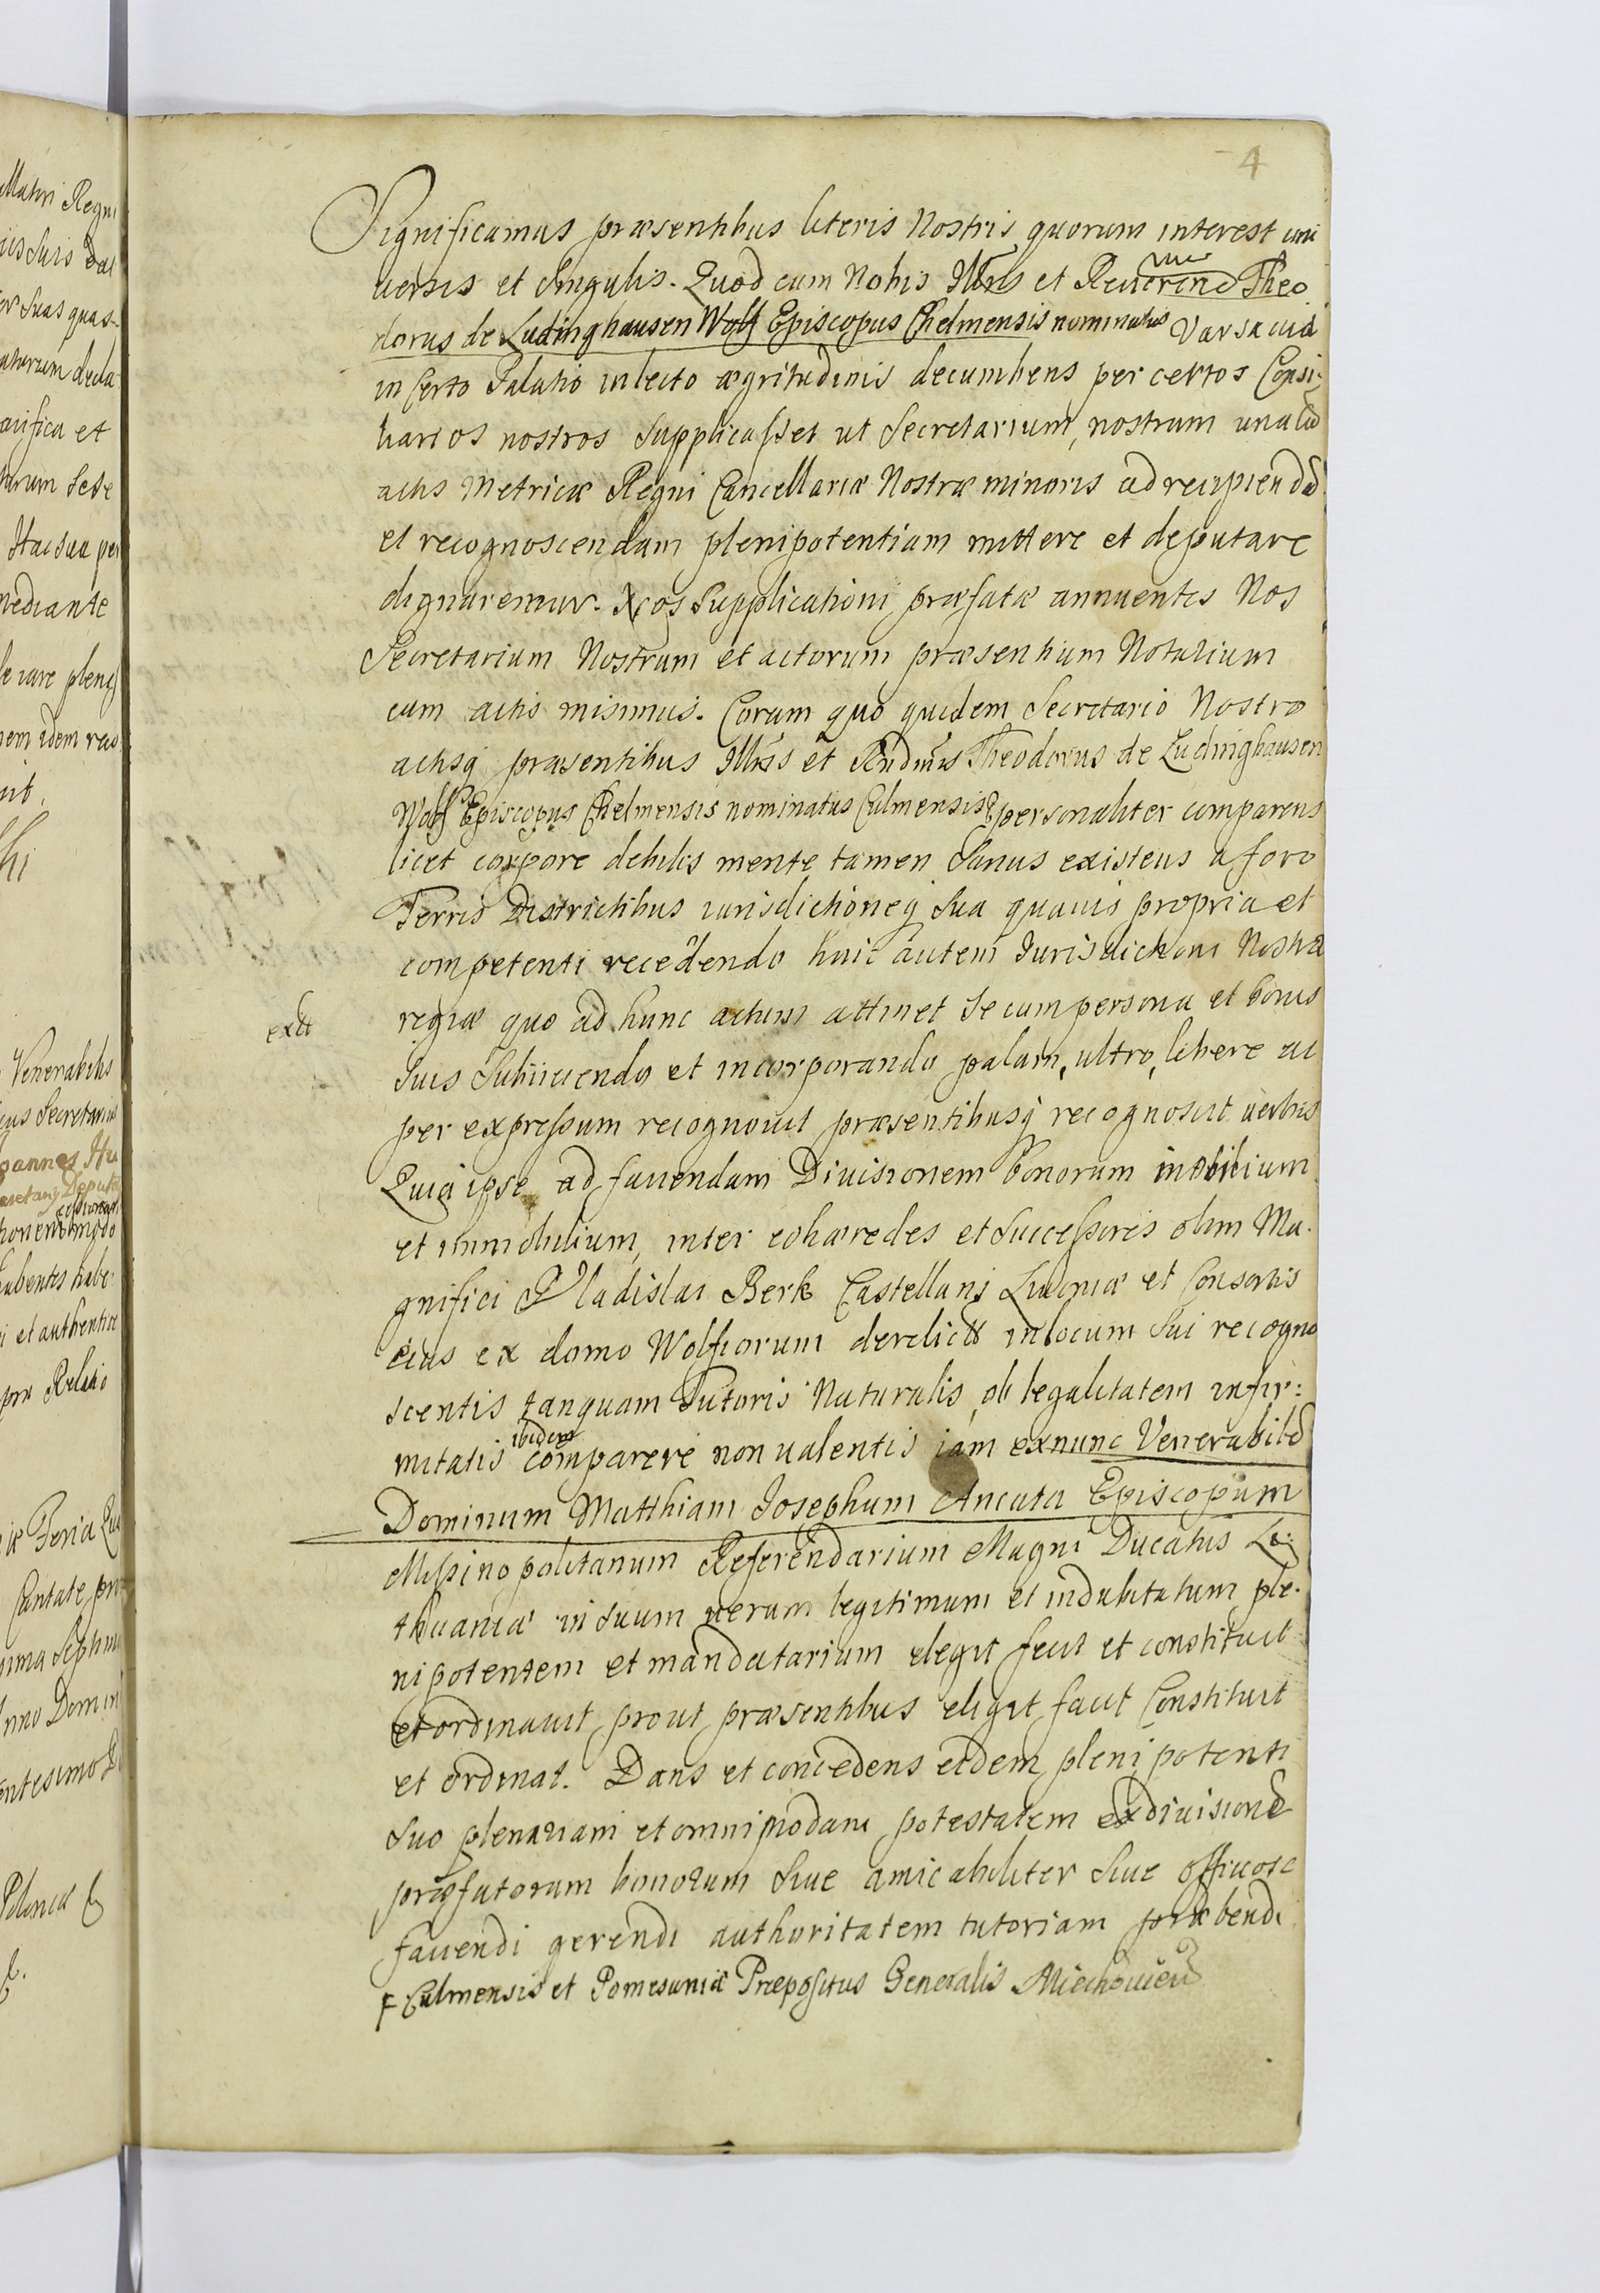 4
Significamus præsentibus literis Nostris quorum interest uni
uersis et Singulis. Quod cum Nobis Illris et Reuerend Theo
dorus de Ludinghausen Wolf Episcopus Chelmensis nominatus Varsauiæ
in Certo Palatio in lecto ægritudinis decumbens per certos Consi:
liarios nostros Supplicasset ut Secretarium nostrum una cū
actis Metricæ Regni Cancellariæ Nostræ minoris ad recipiendā
et recognoscendam plenipotentiam mittere et deputare
dignaremur. Nos Supplicationi præfatæ annuentes Nos
Secretarium Nostrum et actorum præsentium Notarium
cum actis misimus. Coram quo quidem Secretario Nostro
actisq præsentibus Illris et Rndmus Theodorus de Ludinghausen
Wolf Episcopus Chelmensis nominatus Culmensis personaliter comparens
licet corpore debilis mente tamen Sanus existens a foro
Terris Districtibus iurisdictioneq Sua quauis propria et
competenti recedendo huic autem Jurisdictioni Nostræ
regiæ quo ad hunc actum attinet Se cum persona et bonis
exit
Suis Subiiciendo et incorporando palam, ultro, libere ac
per expressum recognouit præsentibusq recognoscit uerbis
Quia ipse ad faciendam Diuisionem bonorum mobilium
et immobilium, inter cohæredes et Successores olim Ma.
gnifici Vladislai Berk Castellani Liuoniæ et Consortis
eius ex domo Wolfiorum derelict in locum Sui recogno
scentis tanquam Tutoris Naturalis ob legalitatem infir:
ibidem
mitatis comparere non ualentis iam exnunc Venerabilē
Dominum Matthiam Josephum Ancuta Episcopum
Missinopolitanum Referendarium Magni Ducatus Li:
thuaniæ in Suum uerum legitimum et indubitatum ple.
nipotentem et mandatarium elegit fecit et constituit
et ordinauit prout præsentibus eligit facit Constituit
et ordinat. Dans et concedens eidem plenipotenti
Suo plenariam et omnimodam potestatem ex diuisione
præfatorum bonorum Siue amicabiliter Siue officiose
faciendi gerendi authoritatem tutoriam præbendi
Culmensis et Pomesaniæ Præpositus Generalis Miechouien